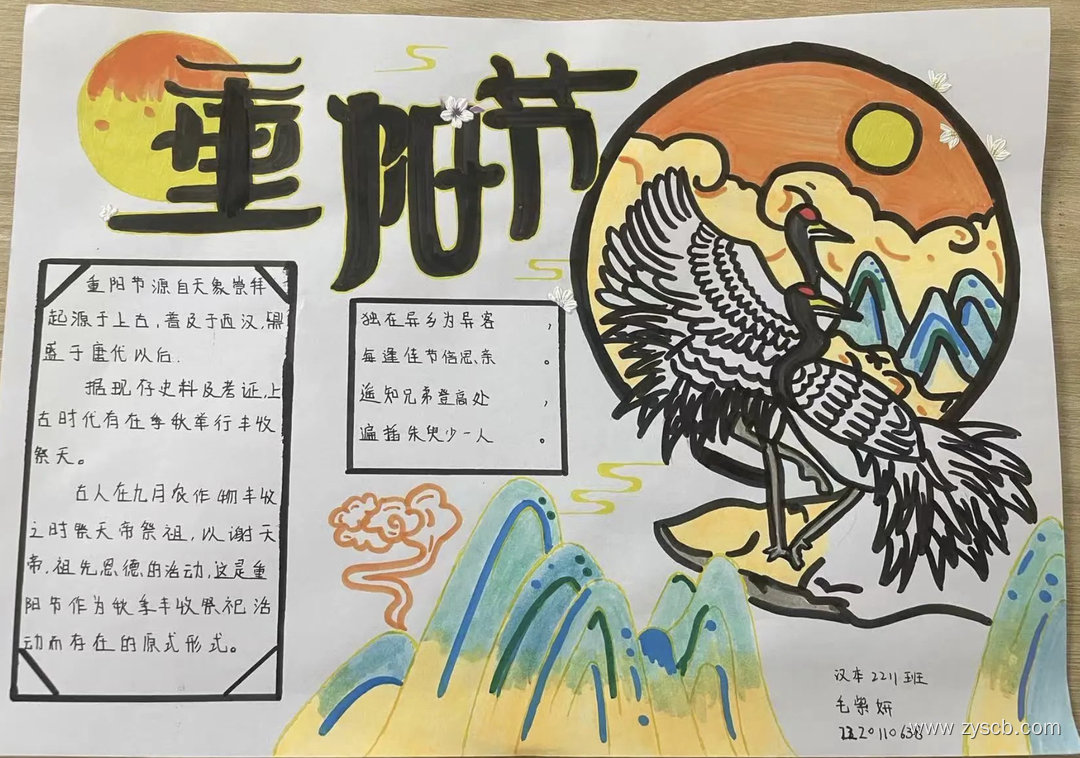 重阳节
重阳节源自天象崇拜
起源于上古，普及于西汉，鼎
盛于唐代以后.
据现存史料及考证，上
古时代有在季秋举行丰收
祭天。
古人在九月农作物丰收
之时祭天帝祭祖，以谢天
帝，祖先恩德的活动，这是重
阳节作为秋季丰收祭祀活
动而存在的原式形式。
独在异乡为异客，
每逢佳节倍思亲。
遥知兄弟登高处，
遍插朱臾少一人。
汉本2211班
毛 妍
2220110638
www.zyscb.com